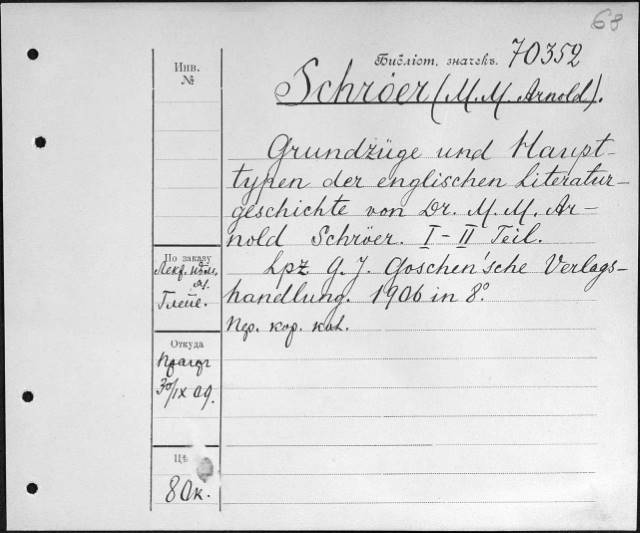 68
Библіот. значекъ. 70352
Инв.
№
Schröer (M. M. Arnold).
Grundzüge und Haupt-
typen der englischen Literatur-
geschichte von Dr. M. M. Ar-
nold Schröer. I-II Teil.
Lpz G. J. Goschen'sche Verlags-
handlung. 1906 in 8º
кор.
По заказу
Лект.
Откуда
30/IX 09.
Цѣ
80к.